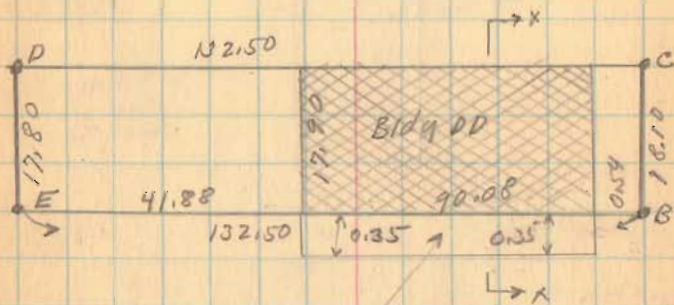 X
D 132.50 C
17.80 17.90 Bldg DD 0.54 18.10
E 41.88 90.08 B
132.50 0.35 0.35
X